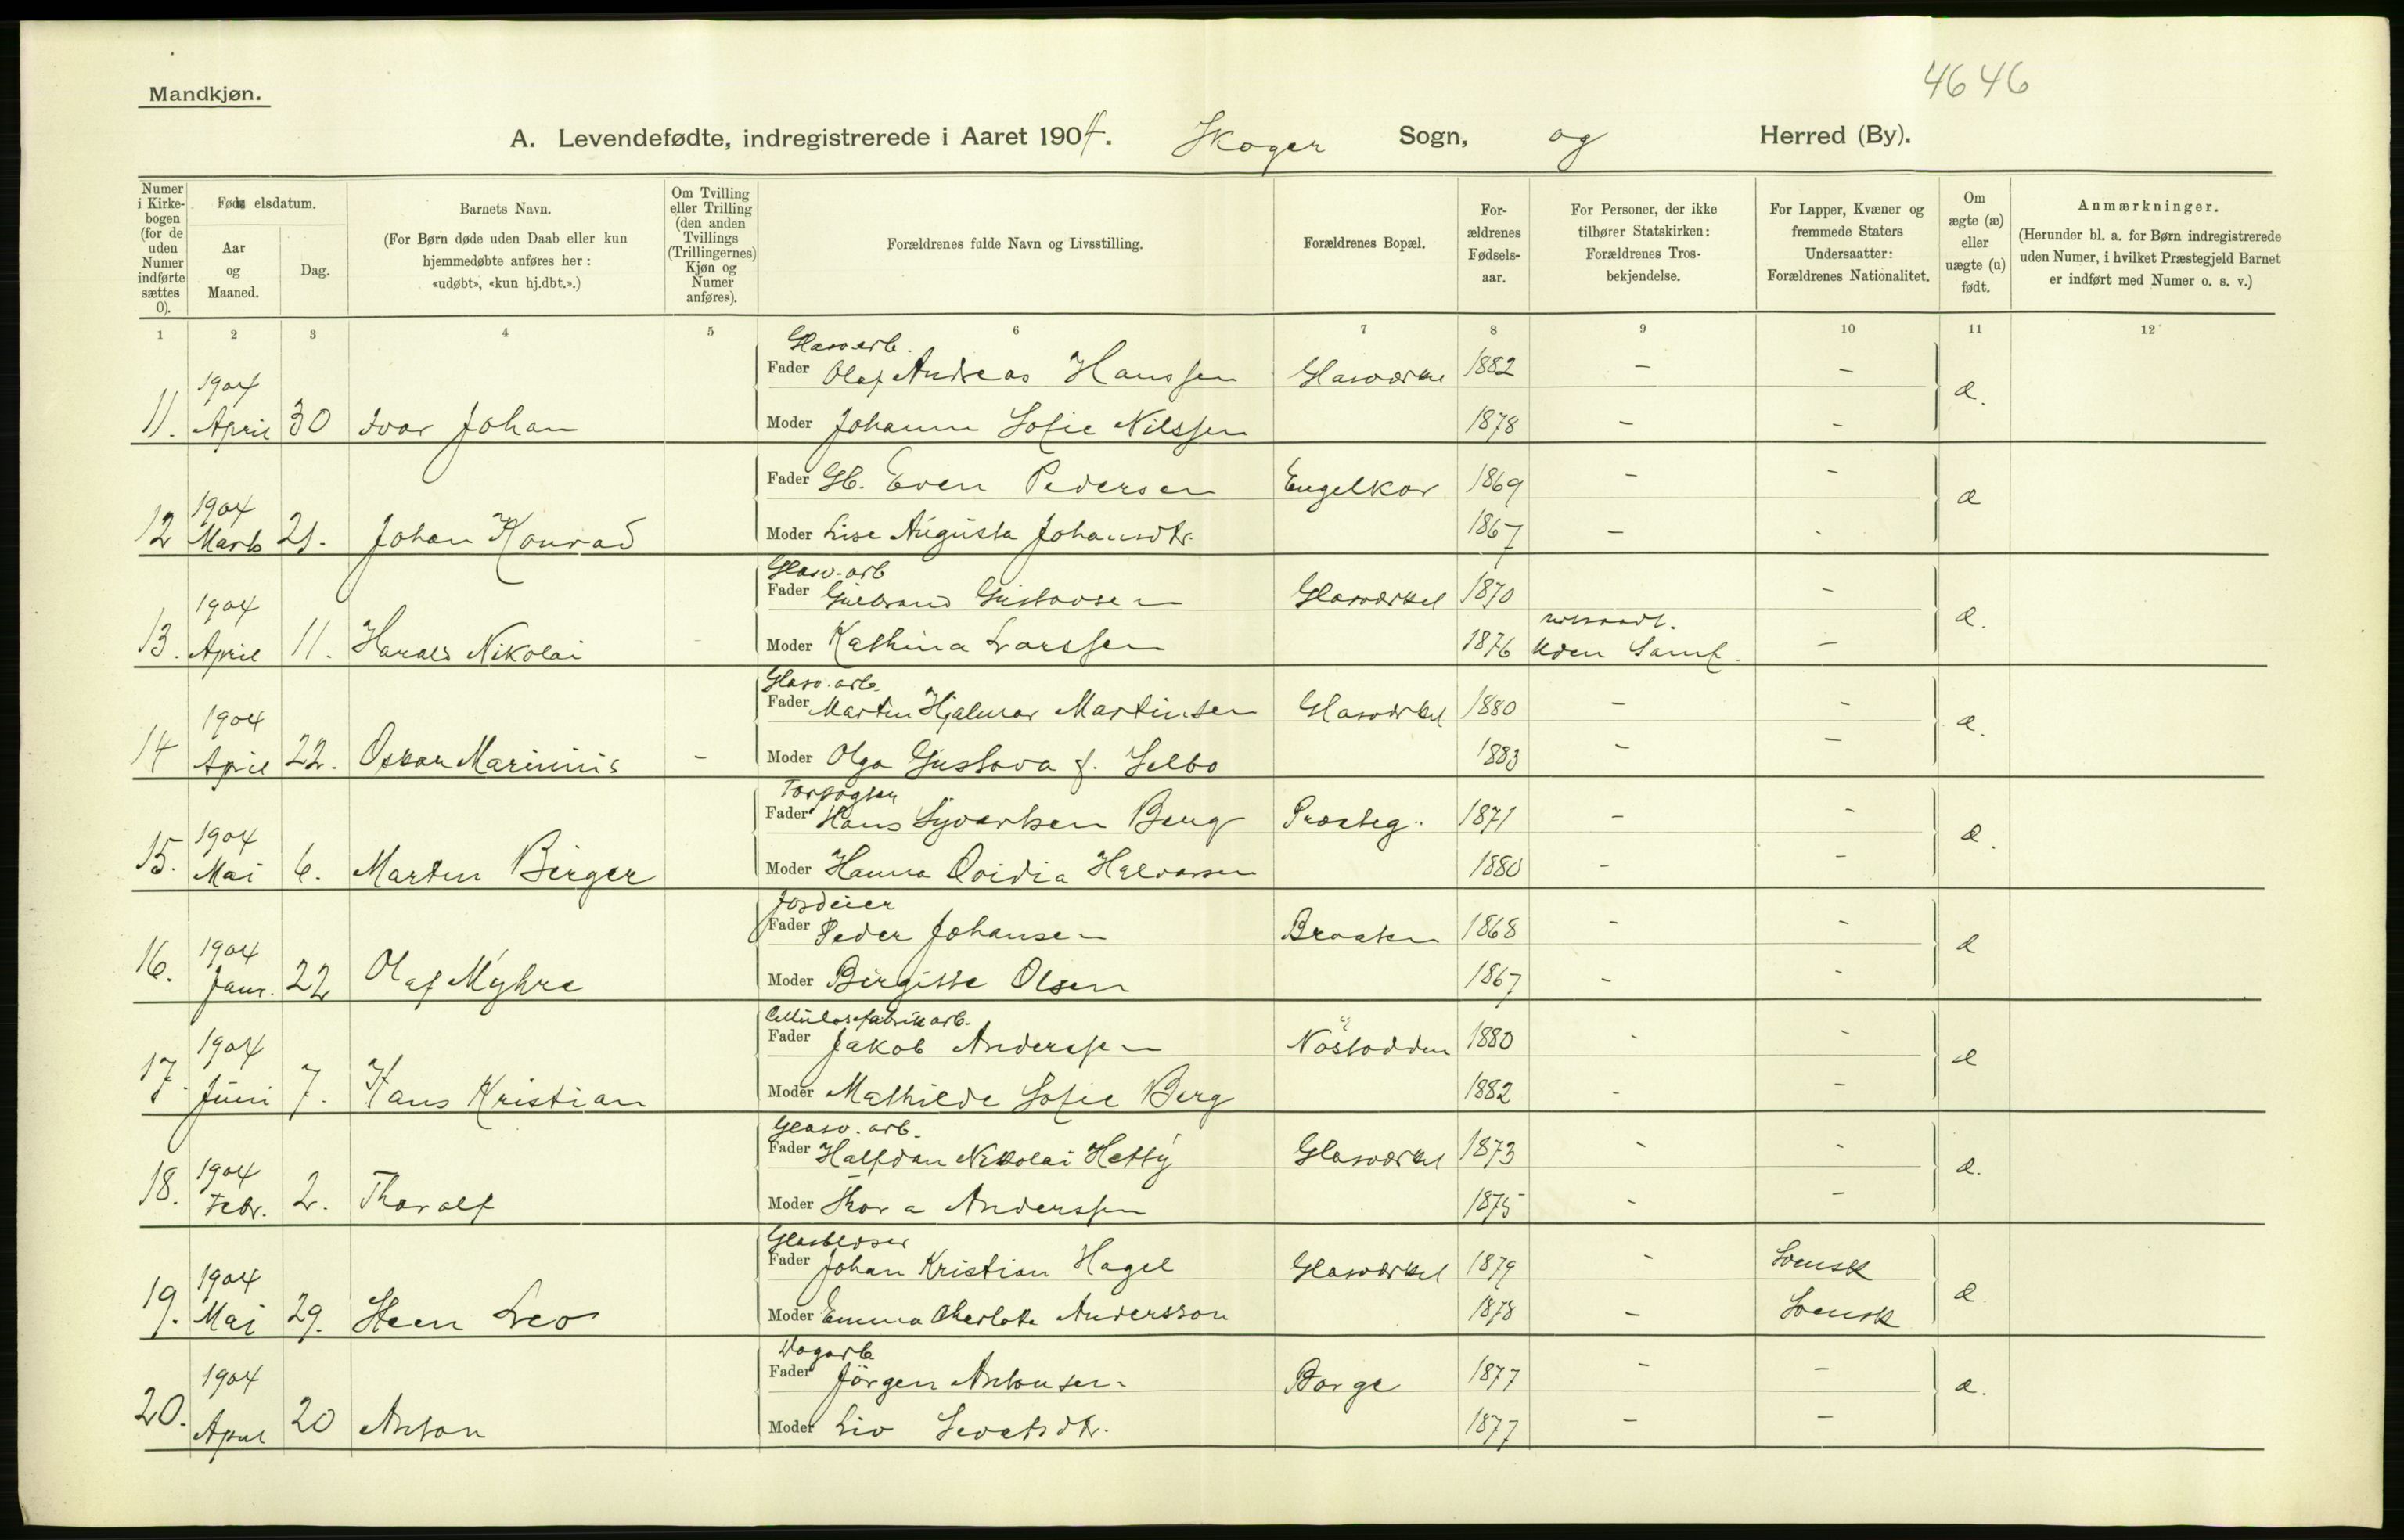 Mandkjøn.
4646
A. Levendefødte, indregistrerede i Aaret 1904. Skoger Sogn, og Herred (By).
Numer i Kirkebogen (for de uden Numer indførte sættes 0).
Fødselsdatum.
Aar og Maaned.
Dag.
Barnets Navn.
(For Børn døde uden Daab eller kun hjemmedøbte anføres her: «udøbt», «kun hj.dbt.».)
Om Tvilling eller Trilling (den anden Tvillings (Trillingernes) Kjøn og Numer anføres).
Forældrenes fulde Navn og Livsstilling.
Forældrenes Bopæl.
Forældrenes Fødselsaar.
For Personer, der ikke tilhører Statskirken: Forældrenes Trosbekjendelse.
For Lapper, Kvæner og fremmede Staters Undersaatter: Forældrenes Nationalitet.
Om ægte (æ) eller uægte (u) født.
Anmærkninger.
(Herunder bl. a. for Børn indregistrerede uden Numer, i hvilket Præstegjeld Barnet er indført med Numer o. s. v.)
1 2 3 4 5 6 7 8 9 10 11 12
Glasv.arb.
1904 Fader Olaf Andreas Hanssen Glasværket 1882 - - æ.
11. April 30 Ivar Johan Moder Johanne Sofie Nilssen 1878 - -
1904 Fader Gb. Even Pedersen Engelkor 1869 - - æ
12 Marts 21. Johan Konrad Moder Lise Augusta Johansdtr. 1867 - -
Glasv.arb
1904 Fader Gulbrand Gustavsen Glasværket 1870 - æ.
13. April 11. Harald Nikolai - Moder Kathina Larssen 1876 Uden Samf. -
Glasv.arb.
1904 Fader Martin Hjalmar Martinsen Glasværket 1880 - - æ.
14 April 22. Oskar Marinius - Moder Olga Gustava f. Selbo 1883 - -
1904 Fader Hans Syvertsen Berg Præsteg. 1871 - - æ.
15. Mai 6. Martin Birger Moder Hanna Ovidia Halvorsen 1880 - -
Jordeier
1904 Fader Peder Johansen Braaten 1868 - - æ
16. Janr. 22 Olaf Myhre Moder Birgitte Olsen 1867 - -
Cellulosefabrikarb.
1904 Fader Jakob Anderssen Nöstodden 1880 - - æ
17. Juni 7. Hans Kristian Moder Mathilde Sofie Berg 1882 - -
Glasv. arb.
1904 Fader Halfdan Nikolai Hetty Glasværket 1873 - - æ.
18. Febr. 2. Thoralf Moder Thora Anderssen 1875 - -
Glasblæser
1904 Fader Johan Kristian Hagel Glasværket 1879 - Svensk æ.
19. Mai 29. Steen Leo Moder Emma Charlotte Andersson 1878 - Svensk
Dagarb
1904 Fader Jörgen Antonsen Borge 1877 - - æ.
20. April 20 Anton Moder Liv Sevatsdtr. 1877 - -